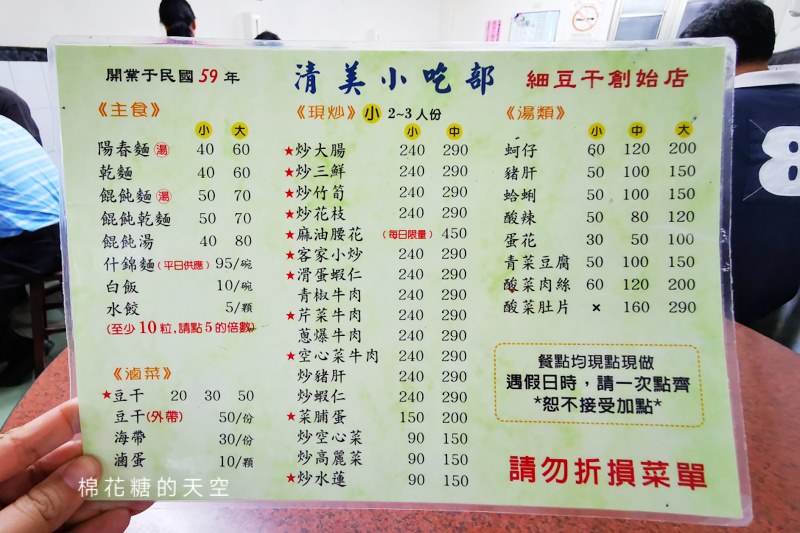 開業于民國 59 年
清美小吃部
細豆干創始店
《主食》
小 大
陽春麵 湯 40 60
乾麵 40 60
餛飩麵 湯 50 70
餛飩乾麵 50 70
餛飩湯 40 80
什錦麵 (平日供應) 95/碗
白飯 10/碗
水餃 5/顆
(至少10粒,請點5的倍數)
《滷菜》
★豆干 20 30 50
豆干(外帶) 50/份
海帶 30/份
滷蛋 10/顆
《現炒》 小 2~3人份
小 中
★炒大腸 240 290
★炒三鮮 240 290
★炒竹筍 240 290
★炒花枝 240 290
★麻油腰花 (每日限量) 450
★客家小炒 240 290
★滑蛋蝦仁 240 290
青椒牛肉 240 290
★芹菜牛肉 240 290
蔥爆牛肉 240 290
★空心菜牛肉 240 290
炒豬肝 240 290
炒蝦仁 240 290
★菜脯蛋 150 200
炒空心菜 90 150
炒高麗菜 90 150
★炒水蓮 90 150
《湯類》
小 中 大
蚵仔 60 120 200
豬肝 50 100 150
蛤蜊 50 100 150
酸辣 50 80 120
蛋花 30 50 100
青菜豆腐 50 100 150
酸菜肉絲 60 120 200
酸菜肚片 × 160 290
餐點均現點現做
遇假日時，請一次點齊
*恕不接受加點*
請勿折損菜單
棉花糖的天空